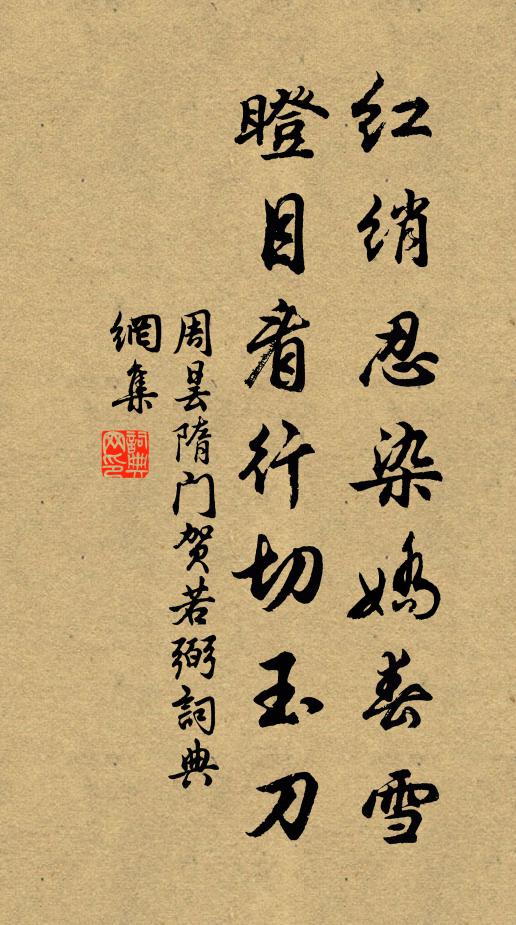 红绡忍染娇春雪
瞪目看行切玉刀
周昙隋门贺若弼詞典
網集
詞典
网印